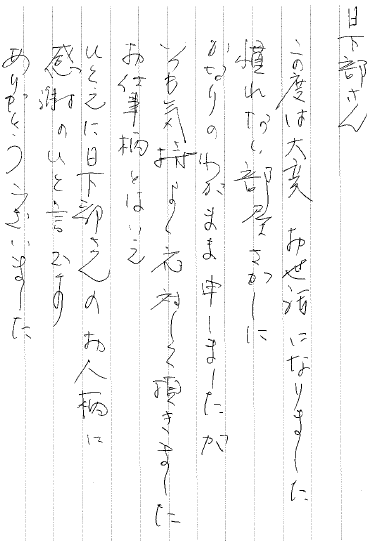 日下部さん
この度は大変お世話になりました
慣れない部屋さがしに
かなりのわがまま申しましたが
いつも気持よく応対して頂きました
お仕事柄とはいえ
ひとえに日下部さんのお人柄に
感謝のひと言です
ありがとうございました